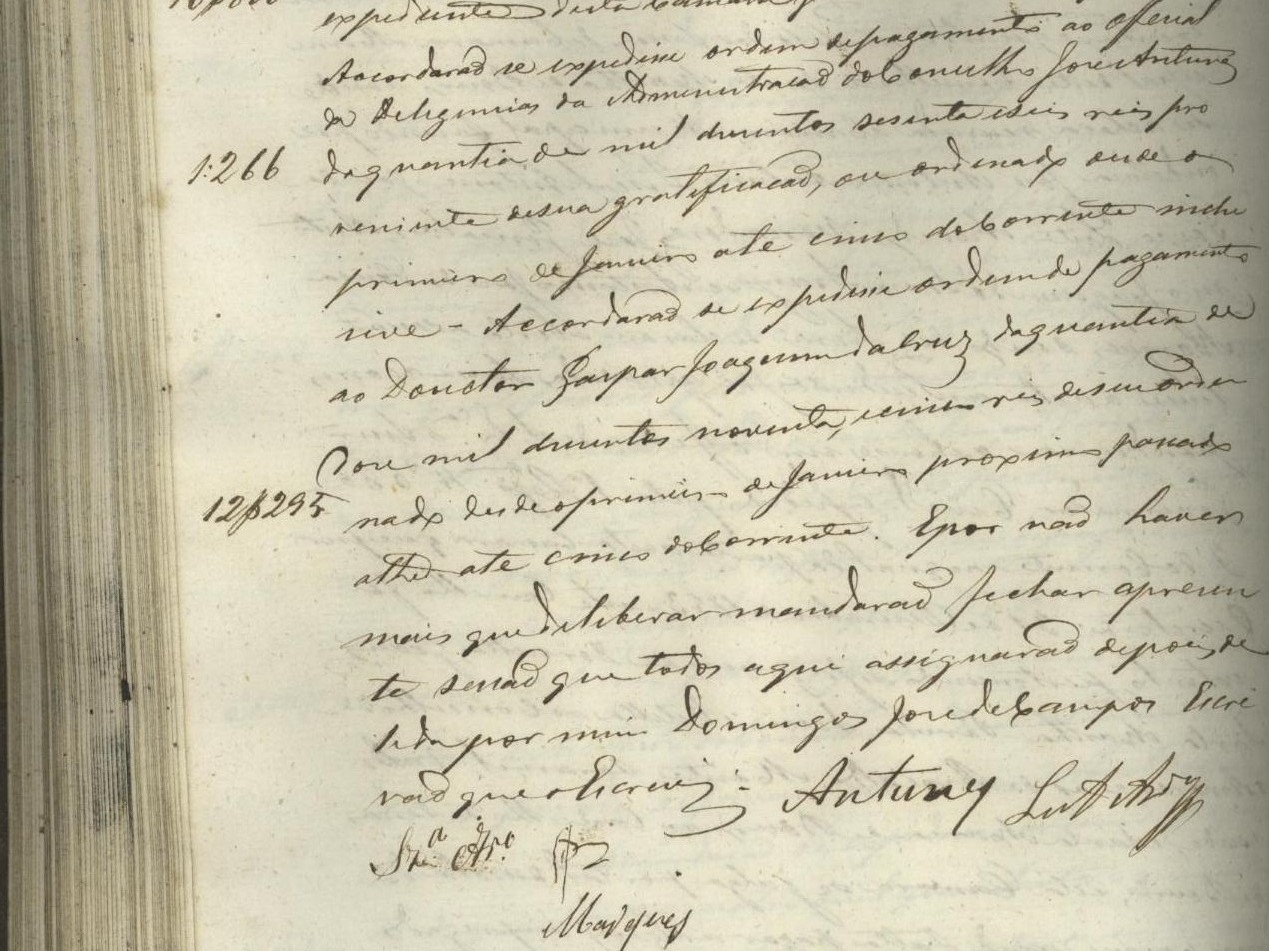 expediente desta Camara
Accordarão se expedisse ordem de pagamento ao Official
da deligencias da Administracão do Concelho Jose Antunes
1:266 da quantia de mil duzentos sesenta e seis reis pro
veniente de sua gratificacão, ou ordenado desde o
primeiro de Janeiro ate cinco do Corrente inclu
sive - Accordarão se expedisse ordem de pagamento
ao Douctor Gaspar Joaquim da Cruz da quantia de
Doze mil duzentos noventa, e cinco reis de seu orde
12$295 nado desde o primeiro de Janeiro proximo passado
athe ate cinco do Corrente. E por não haver
mais que deliberar mandarão fechar a presen
te sessão que todos aqui assignarão depois de
lida por mim Domingos Jose de Campos Escri
vão que o Escrevi.
Antunes
Marques